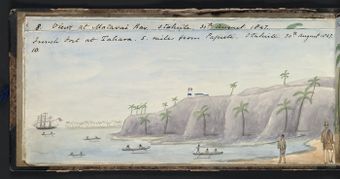 8. View at Matavai Bay. Otaheite. 30th August 1847.
French Fort at Taharа. 5. miles from Papiete. Otaheite 30th August 1847.
10.